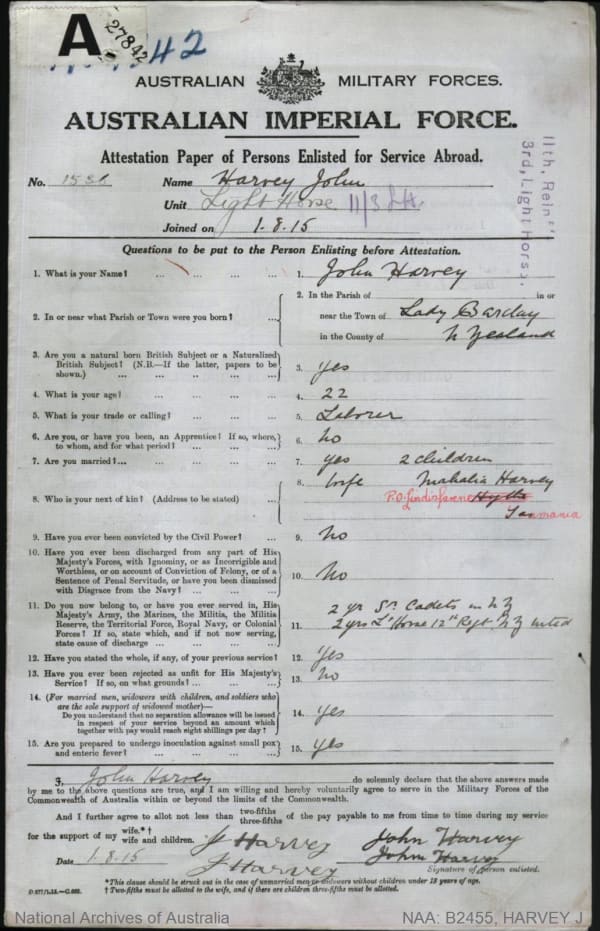 A
27842
42
AUSTRALIAN MILITARY FORCES.
AUSTRALIAN IMPERIAL FORCE.
Attestation Paper of Persons Enlisted for Service Abroad.
No. Name Harvey John
Unit Light Horse 11/3 L.H.
Joined on 1.8.15
11th, Reinf
3rd, Light Horse.
Questions to be put to the Person Enlisting before Attestation.
1. What is your Name? ... ... ... ... 1. John Harvey
2. In or near what Parish or Town were you born? ... 2. In the Parish of in or
near the Town of Lady Barclay
in the County of N Zealand
3. Are you a natural born British Subject or a Naturalized
British Subject? (N.B.—If the latter, papers to be
shown.) ... ... ... ... 3. Yes
4. What is your age? ... ... ... ... 4. 22
5. What is your trade or calling? ... ... ... 5. Laborer
6. Are you, or have you been, an Apprentice? If so, where,
to whom, and for what period? ... ... ... 6. No
7. Are you married? ... ... ... ... 7. Yes 2 children
8. Who is your next of kin? (Address to be stated) ... 8. Wife Mahalia Harvey
P.O. Lindisfarne
Tasmania
9. Have you ever been convicted by the Civil Power? ... 9. No
10. Have you ever been discharged from any part of His
Majesty's Forces, with Ignominy, or as Incorrigible and
Worthless, or on account of Conviction of Felony, or of a
Sentence of Penal Servitude, or have you been dismissed
with Disgrace from the Navy? ... ... ... 10. No
11. Do you now belong to, or have you ever served in, His
Majesty's Army, the Marines, the Militia, the Militia
Reserve, the Territorial Force, Royal Navy, or Colonial
Forces? If so, state which, and if not now serving,
state cause of discharge ... ... ... 11. 2 yr Sr. Cadets in N Z
2 yrs Lt Horse 12th Regt N Z
12. Have you stated the whole, if any, of your previous service? 12. Yes
13. Have you ever been rejected as unfit for His Majesty's
Service? If so, on what grounds? ... ... ... 13. No
14. (For married men, widowers with children, and soldiers who
are the sole support of widowed mother)—
Do you understand that no separation allowance will be issued
in respect of your service beyond an amount which
together with pay would reach eight shillings per day? 14. Yes
15. Are you prepared to undergo inoculation against small pox
and enteric fever? ... ... ... ... 15. Yes
I, John Harvey do solemnly declare that the above answers made
by me to the above questions are true, and I am willing and hereby voluntarily agree to serve in the Military Forces of the
Commonwealth of Australia within or beyond the limits of the Commonwealth.
And I further agree to allot not less than two-fifths three-fifths of the pay payable to me from time to time during my service
for the support of my wife.*† wife and children. J Harvey John Harvey
Date 1.8.15 J Harvey John Harvey
Signature of person enlisted.
*This clause should be struck out in the case of unmarried men or widowers without children under 18 years of age.
† Two-fifths must be allotted to the wife, and if there are children three-fifths must be allotted.
National Archives of Australia NAA: B2455, HARVEY J